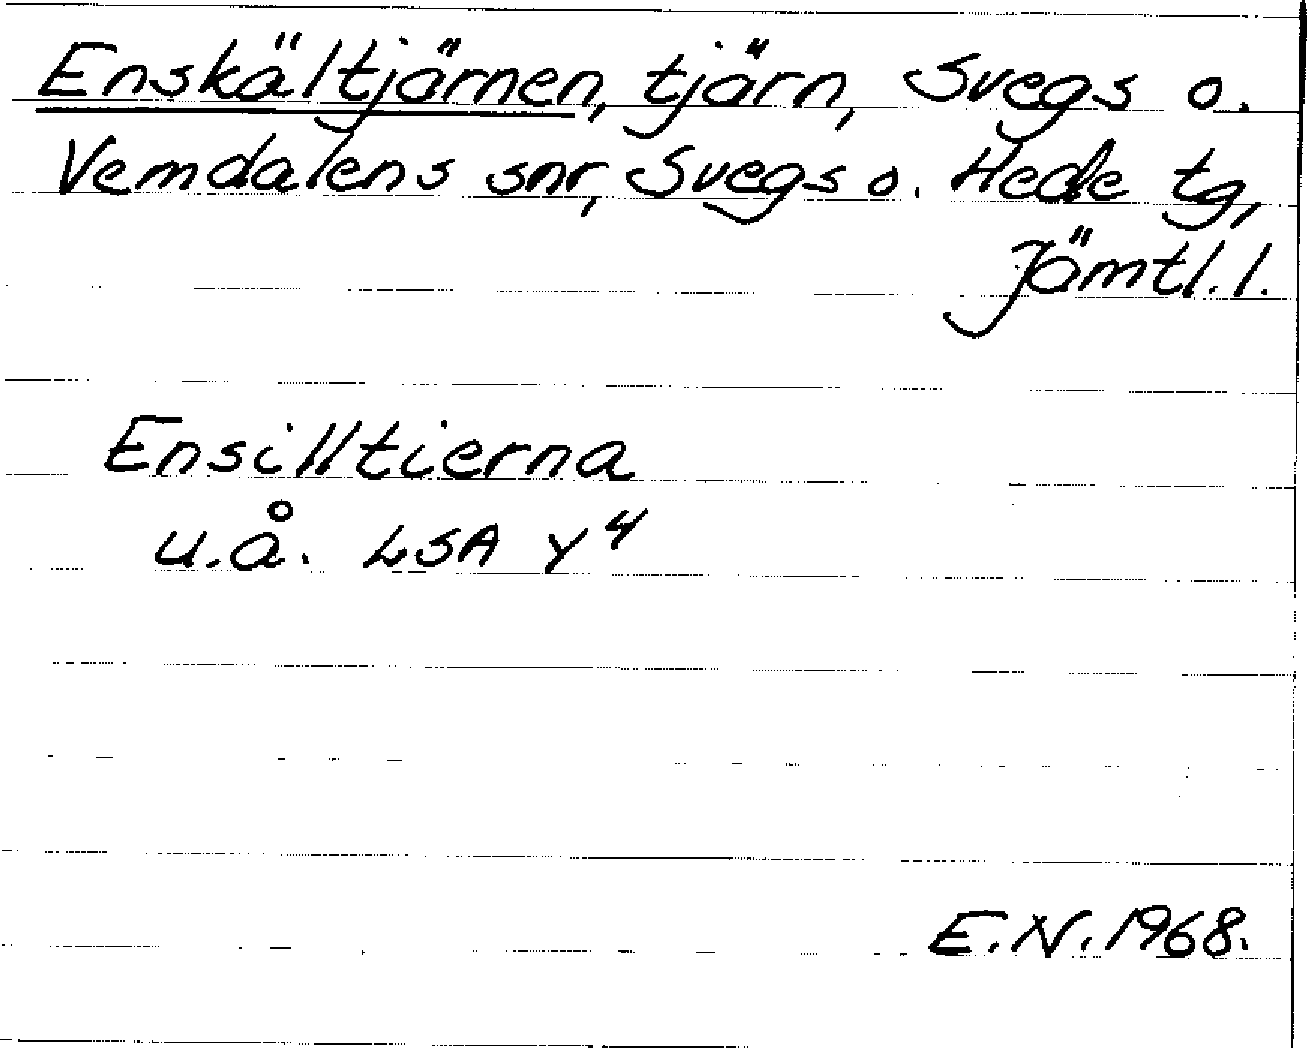 Enskältjärnen, tjärn, Svegs o.
Vemdalens snr, Svegs o. Hede tg,
Jämtl. l.
Ensilltierna
u.å. LSA Y4
E.N. 1968.